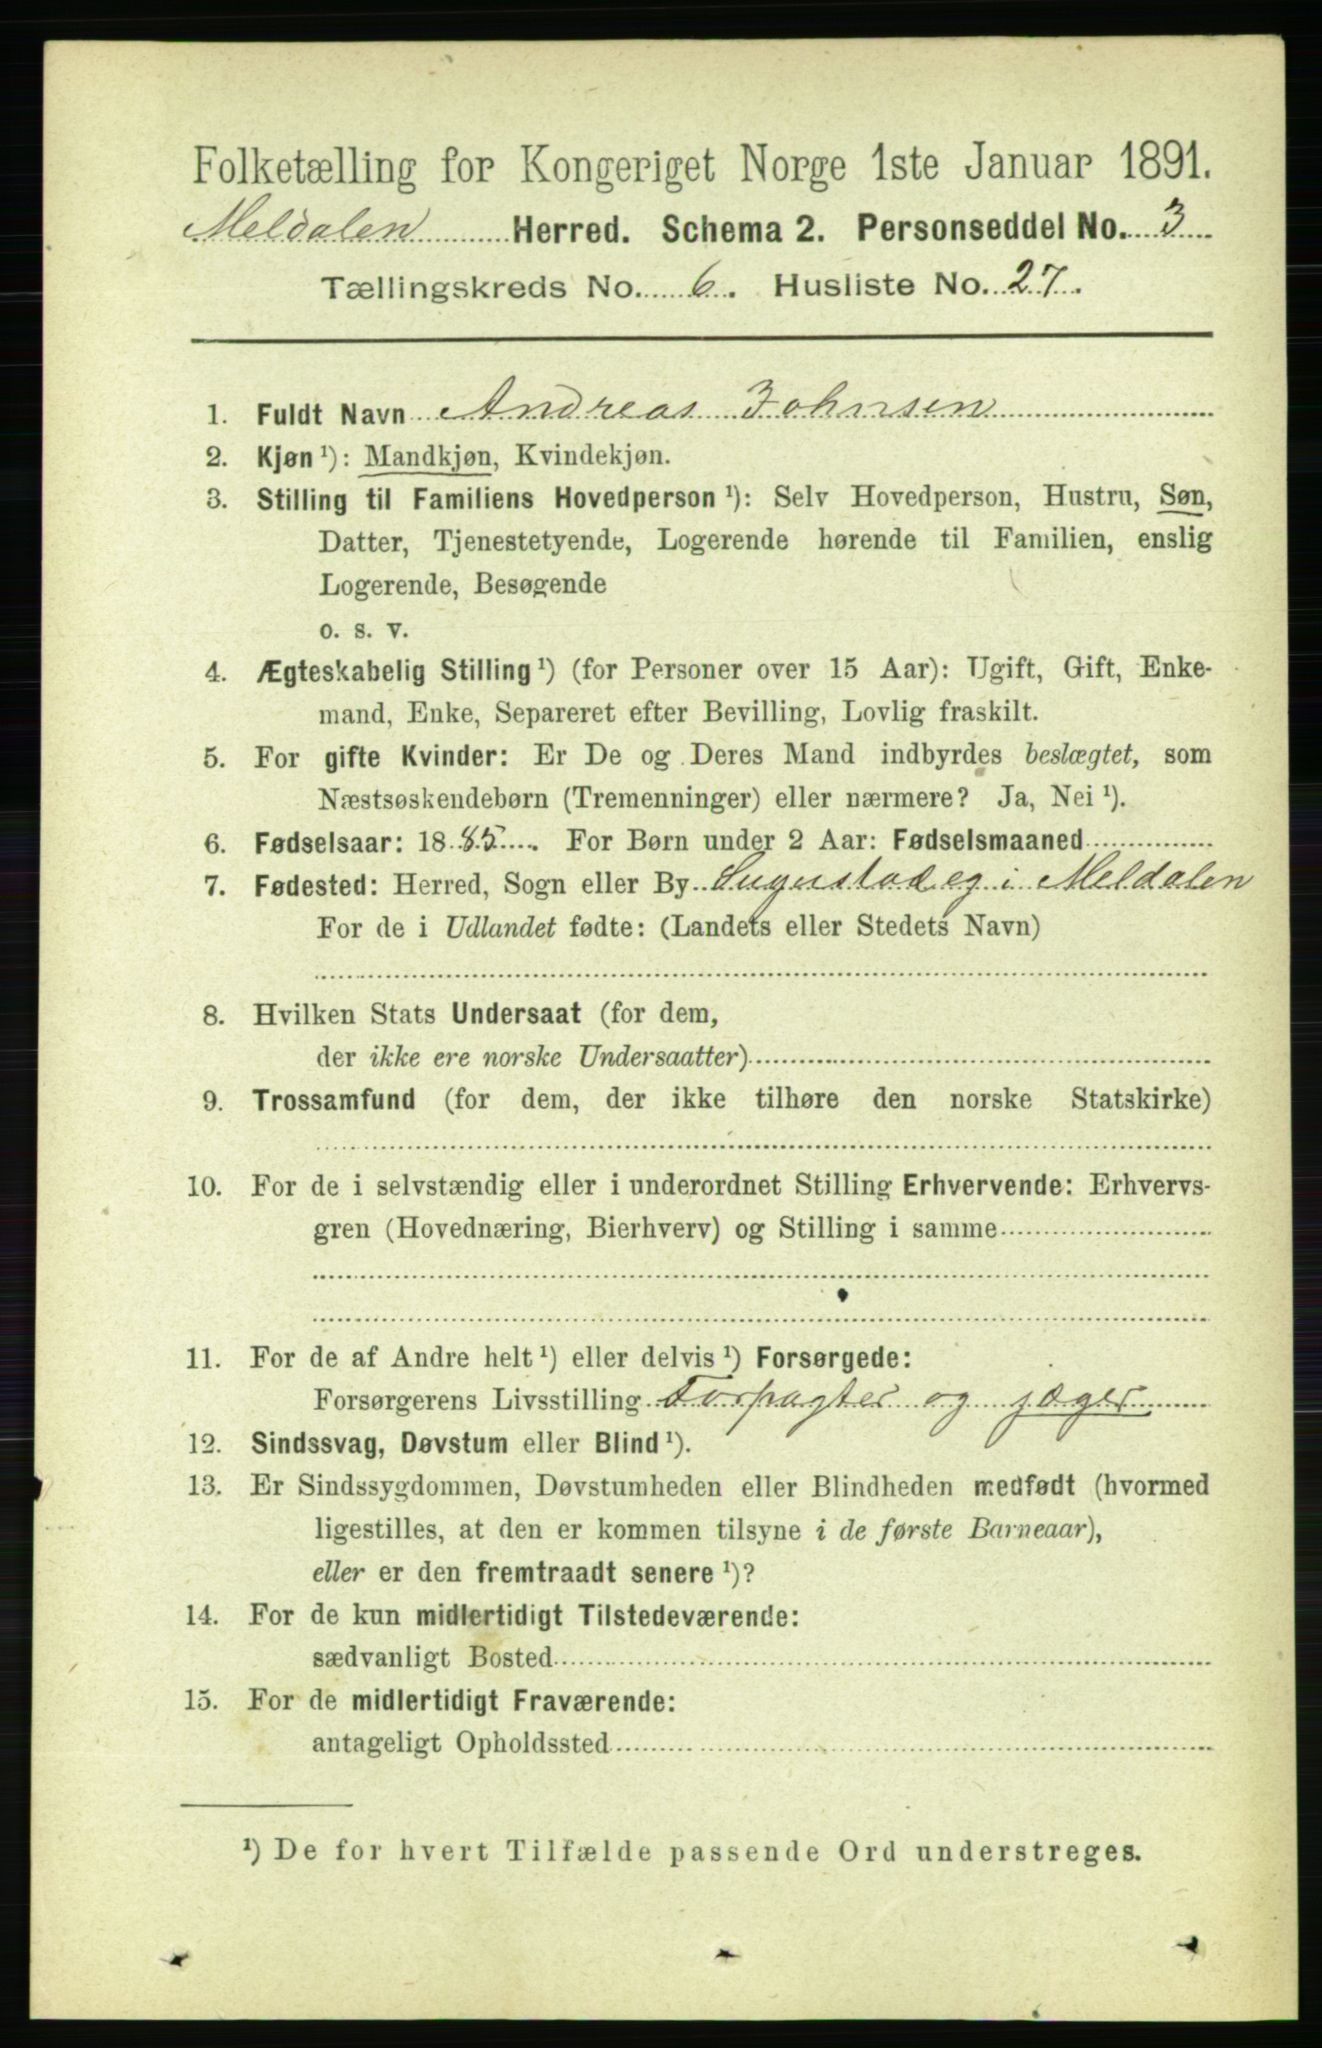 Folketælling for Kongeriget Norge 1ste Januar 1891.
Meldalen Herred. Schema 2. Personseddel No. 3
Tællingskreds No. 6. Husliste No. 27.
1. Fuldt Navn Andreas Johnsen
2. Kjøn ¹): Mandkjøn, Kvindekjøn.
3. Stilling til Familiens Hovedperson ¹): Selv Hovedperson, Hustru, Søn,
Datter, Tjenestetyende, Logerende hørende til Familien, enslig
Logerende, Besøgende
o. s. v.
4. Ægteskabelig Stilling ¹) (for Personer over 15 Aar): Ugift, Gift, Enke-
mand, Enke, Separeret efter Bevilling, Lovlig fraskilt.
5. For gifte Kvinder: Er De og Deres Mand indbyrdes beslægtet, som
Næstsøskendebørn (Tremenninger) eller nærmere? Ja, Nei ¹).
6. Fødselsaar: 1885. For Børn under 2 Aar: Fødselsmaaned
7. Fødested: Herred, Sogn eller By i Meldalen
For de i Udlandet fødte: (Landets eller Stedets Navn)
8. Hvilken Stats Undersaat (for dem,
der ikke ere norske Undersaatter)
9. Trossamfund (for dem, der ikke tilhøre den norske Statskirke)
10. For de i selvstændig eller i underordnet Stilling Erhvervende: Erhvervs-
gren (Hovednæring, Bierhverv) og Stilling i samme
11. For de af Andre helt ¹) eller delvis ¹) Forsørgede:
Forsørgerens Livsstilling Forpagter og jæger
12. Sindssvag, Døvstum eller Blind ¹).
13. Er Sindssygdommen, Døvstumheden eller Blindheden medfødt (hvormed
ligestilles, at den er kommen tilsyne i de første Barneaar),
eller er den fremtraadt senere ¹)?
14. For de kun midlertidigt Tilstedeværende:
sædvanligt Bosted
15. For de midlertidigt Fraværende:
antageligt Opholdssted
¹) De for hvert Tilfælde passende Ord understreges.